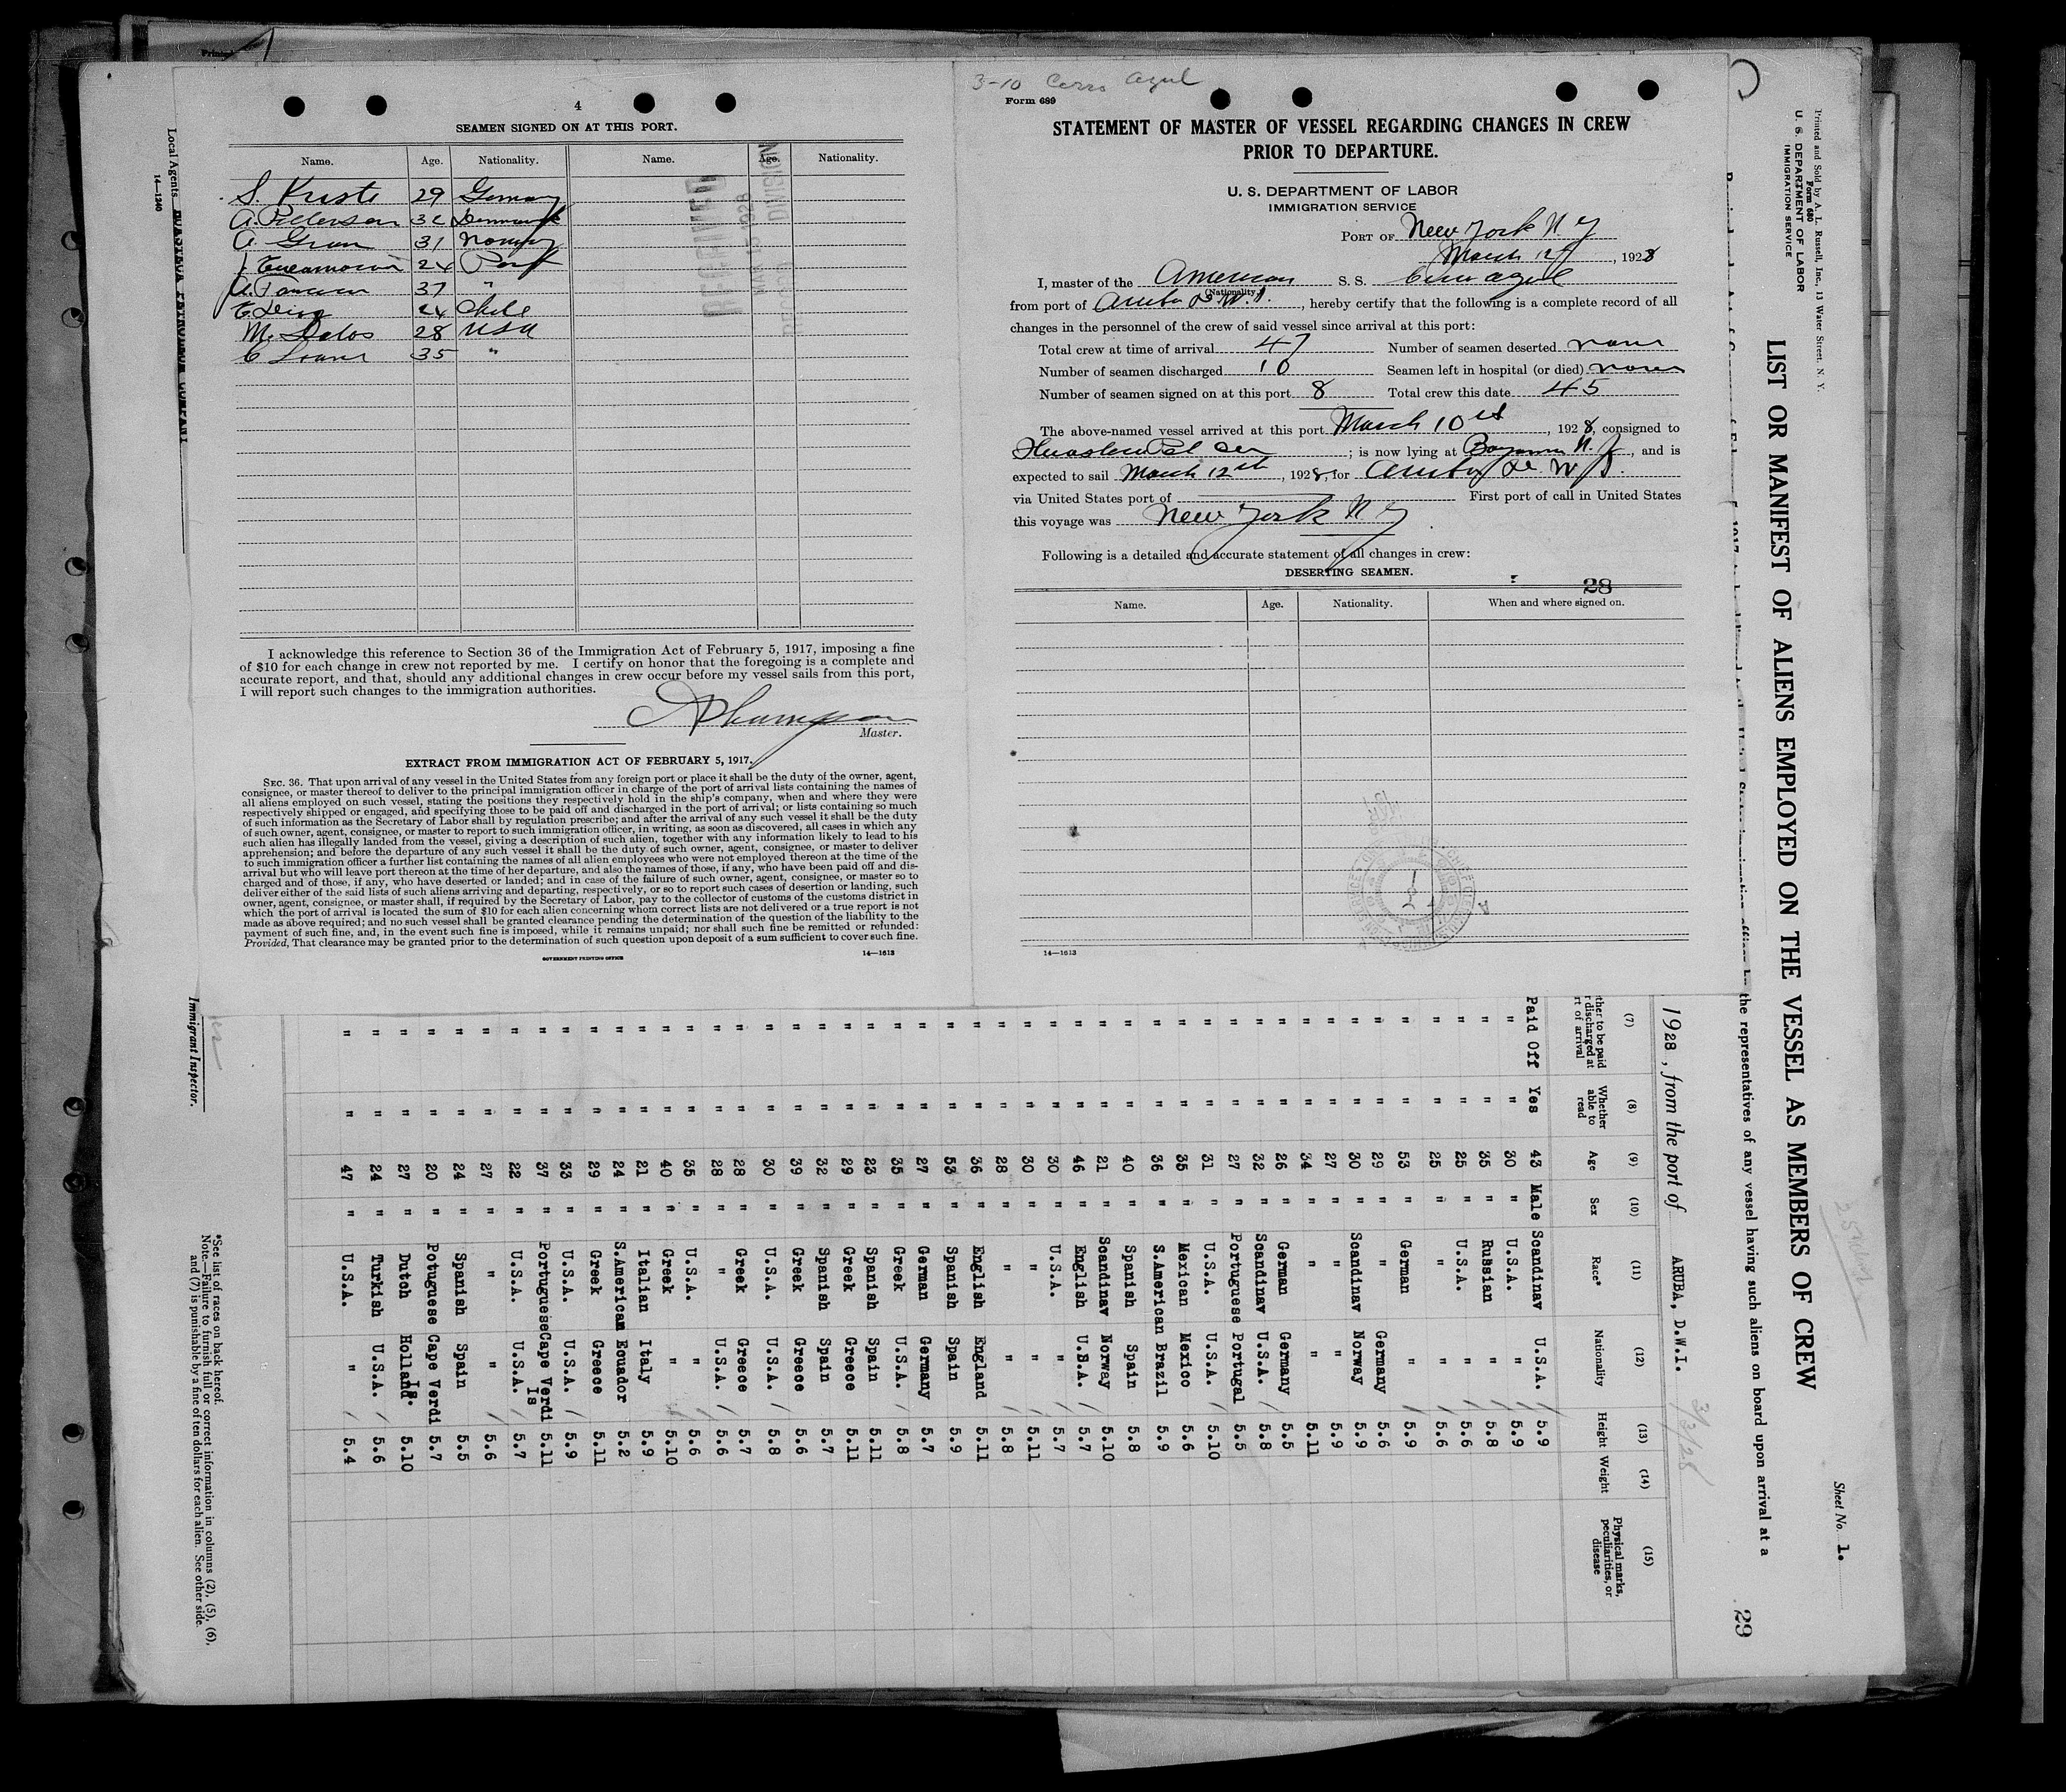 4
SEAMEN SIGNED ON AT THIS PORT.
Name. Age. Nationality. Name. Age. Nationality.
S. 29 Germany
A. Petterson 32 Denmark
A. Gran 31 Norway
24 Port
A. 37 "
E. 24 Chile
M. Delos 28 USA
C 35 "
RECEIVED
MAR 15 1928
RECORD DIVISION
I acknowledge this reference to Section 36 of the Immigration Act of February 5, 1917, imposing a fine
of $10 for each change in crew not reported by me. I certify on honor that the foregoing is a complete and
accurate report, and that, should any additional changes in crew occur before my vessel sails from this port,
I will report such changes to the immigration authorities.
Master.
EXTRACT FROM IMMIGRATION ACT OF FEBRUARY 5, 1917.
SEC. 36. That upon arrival of any vessel in the United States from any foreign port or place it shall be the duty of the owner, agent,
consignee, or master thereof to deliver to the principal immigration officer in charge of the port of arrival lists containing the names of
all aliens employed on such vessel, stating the positions they respectively hold in the ship's company, when and where they were
respectively shipped or engaged, and specifying those to be paid off and discharged in the port of arrival; or lists containing so much
of such information as the Secretary of Labor shall by regulation prescribe; and after the arrival of any such vessel it shall be the duty
of such owner, agent, consignee, or master to report to such immigration officer, in writing, as soon as discovered, all cases in which any
such alien has illegally landed from the vessel, giving a description of such alien, together with any information likely to lead to his
apprehension; and before the departure of any such vessel it shall be the duty of such owner, agent, consignee, or master to deliver
to such immigration officer a further list containing the names of all alien employees who were not employed thereon at the time of the
arrival but who will leave port thereon at the time of her departure, and also the names of those, if any, who have been paid off and dis-
charged and of those, if any, who have deserted or landed; and in case of the failure of such owner, agent, consignee, or master so to
deliver either of the said lists of such aliens arriving and departing, respectively, or so to report such cases of desertion or landing, such
owner, agent, consignee, or master shall, if required by the Secretary of Labor, pay to the collector of customs of the customs district in
which the port of arrival is located the sum of $10 for each alien concerning whom correct lists are not delivered or a true report is not
made as above required; and no such vessel shall be granted clearance pending the determination of the question of the liability to the
payment of such fine, and, in the event such fine is imposed, while it remains unpaid; nor shall such fine be remitted or refunded:
Provided, That clearance may be granted prior to the determination of such question upon deposit of a sum sufficient to cover such fine.
GOVERNMENT PRINTING OFFICE 14—1613
3-10 Cerro Azul
Form 689
STATEMENT OF MASTER OF VESSEL REGARDING CHANGES IN CREW
PRIOR TO DEPARTURE.
U. S. DEPARTMENT OF LABOR
IMMIGRATION SERVICE
PORT OF New York N. Y
March 12, 1928
I, master of the American S. S. Cerro Azul
(Nationality)
from port of Aruba D. W. I., hereby certify that the following is a complete record of all
changes in the personnel of the crew of said vessel since arrival at this port:
Total crew at time of arrival 47 Number of seamen deserted none
Number of seamen discharged 10 Seamen left in hospital (or died) none
Number of seamen signed on at this port 8 Total crew this date 45
The above-named vessel arrived at this port March 10th, 1928, consigned to
Huasteca Pet Co; is now lying at Bayonne N. J., and is
expected to sail March 12th, 1928, for Aruba D. W. I.
via United States port of First port of call in United States
this voyage was New York N Y
Following is a detailed and accurate statement of all changes in crew:
DESERTING SEAMEN.
28
Name. Age. Nationality. When and where signed on.
14—1613
Printed and Sold by A. L. Russell, Inc., 13 Water Street, N. Y.
Form 680
U. S. DEPARTMENT OF LABOR
IMMIGRATION SERVICE
Sheet No. 1.
LIST OR MANIFEST OF ALIENS EMPLOYED ON THE VESSEL AS MEMBERS OF CREW
the representatives of any vessel having such aliens on board upon arrival at a
29
1928, from the port of ARUBA, D.W.I.
3/13/28
(7) (8) (9) (10) (11) (12) (13) (14) (15)
ther to be paid discharged at rt of arrival Whether able to read Age Sex Race* Nationality Height Weight Physical marks, peculiarities, or disease
Paid Off Yes 43 Male Scandinav U.S.A. 5.9
" " 30 " U.S.A. " 5.9
" " 35 " Russian " 5.8
" " 25 " U.S.A. " 5.6
" " 25 " " " 5.6
" " 53 " German " 5.9
" " 29 " " Germany 5.6
" " 30 " Scandinav Norway 5.9
" " 27 " " " 5.9
" " 34 " " " 5.11
" " 26 " German Germany 5.5
" " 32 " Scandinav U.S.A. 5.8
" " 27 " Portuguese Portugal 5.5
" " 31 " U.S.A. U.S.A. 5.10
" " 35 " Mexican Mexico 5.6
" " 36 " S.American Brazil 5.9
" " 40 " Spanish Spain 5.8
" " 21 " Scandinav Norway 5.10
" " 46 " English U.S.A. 5.7
" " 30 " U.S.A. " 5.7
" " 30 " " " 5.11
" " 28 " " " 5.8
" " 36 " English England 5.11
" " 53 " Spanish Spain 5.9
" " 27 " German Germany 5.7
" " 35 " Greek U.S.A. 5.8
" " 23 " Spanish Spain 5.11
" " 29 " Greek Greece 5.11
" " 32 " Spanish Spain 5.7
" " 39 " Greek Greece 5.6
" " 30 " U.S.A. U.S.A. 5.8
" " 28 " Greek Greece 5.7
" " 28 " " U.S.A. 5.6
" " 35 " U.S.A. " 5.6
" " 40 " Greek " 5.10
" " 21 " Italian Italy 5.9
" " 24 " S.American Ecuador 5.2
" " 29 " Greek Greece 5.11
" " 33 " U.S.A. U.S.A. 5.9
" " 37 " Portuguese Cape Verdi Is 5.11
" " 22 " U.S.A. U.S.A. 5.7
" " 27 " " " 5.6
" " 24 " Spanish Spain 5.5
" " 20 " Potuguese Cape Verdi Is. 5.7
" " 27 " Dutch Holland 5.10
" " 24 " Turkish U.S.A. 5.6
" " 47 " U.S.A. " 5.4
Local Agents HUASTECA PETROLEUM COMPANY
14—1240
Immigrant Inspector.
*See list of races on back hereof.
Note.—Failure to furnish full or correct information in columns (2), (5), (6),
and (7) is punishable by a fine of ten dollars for each alien. See other side.